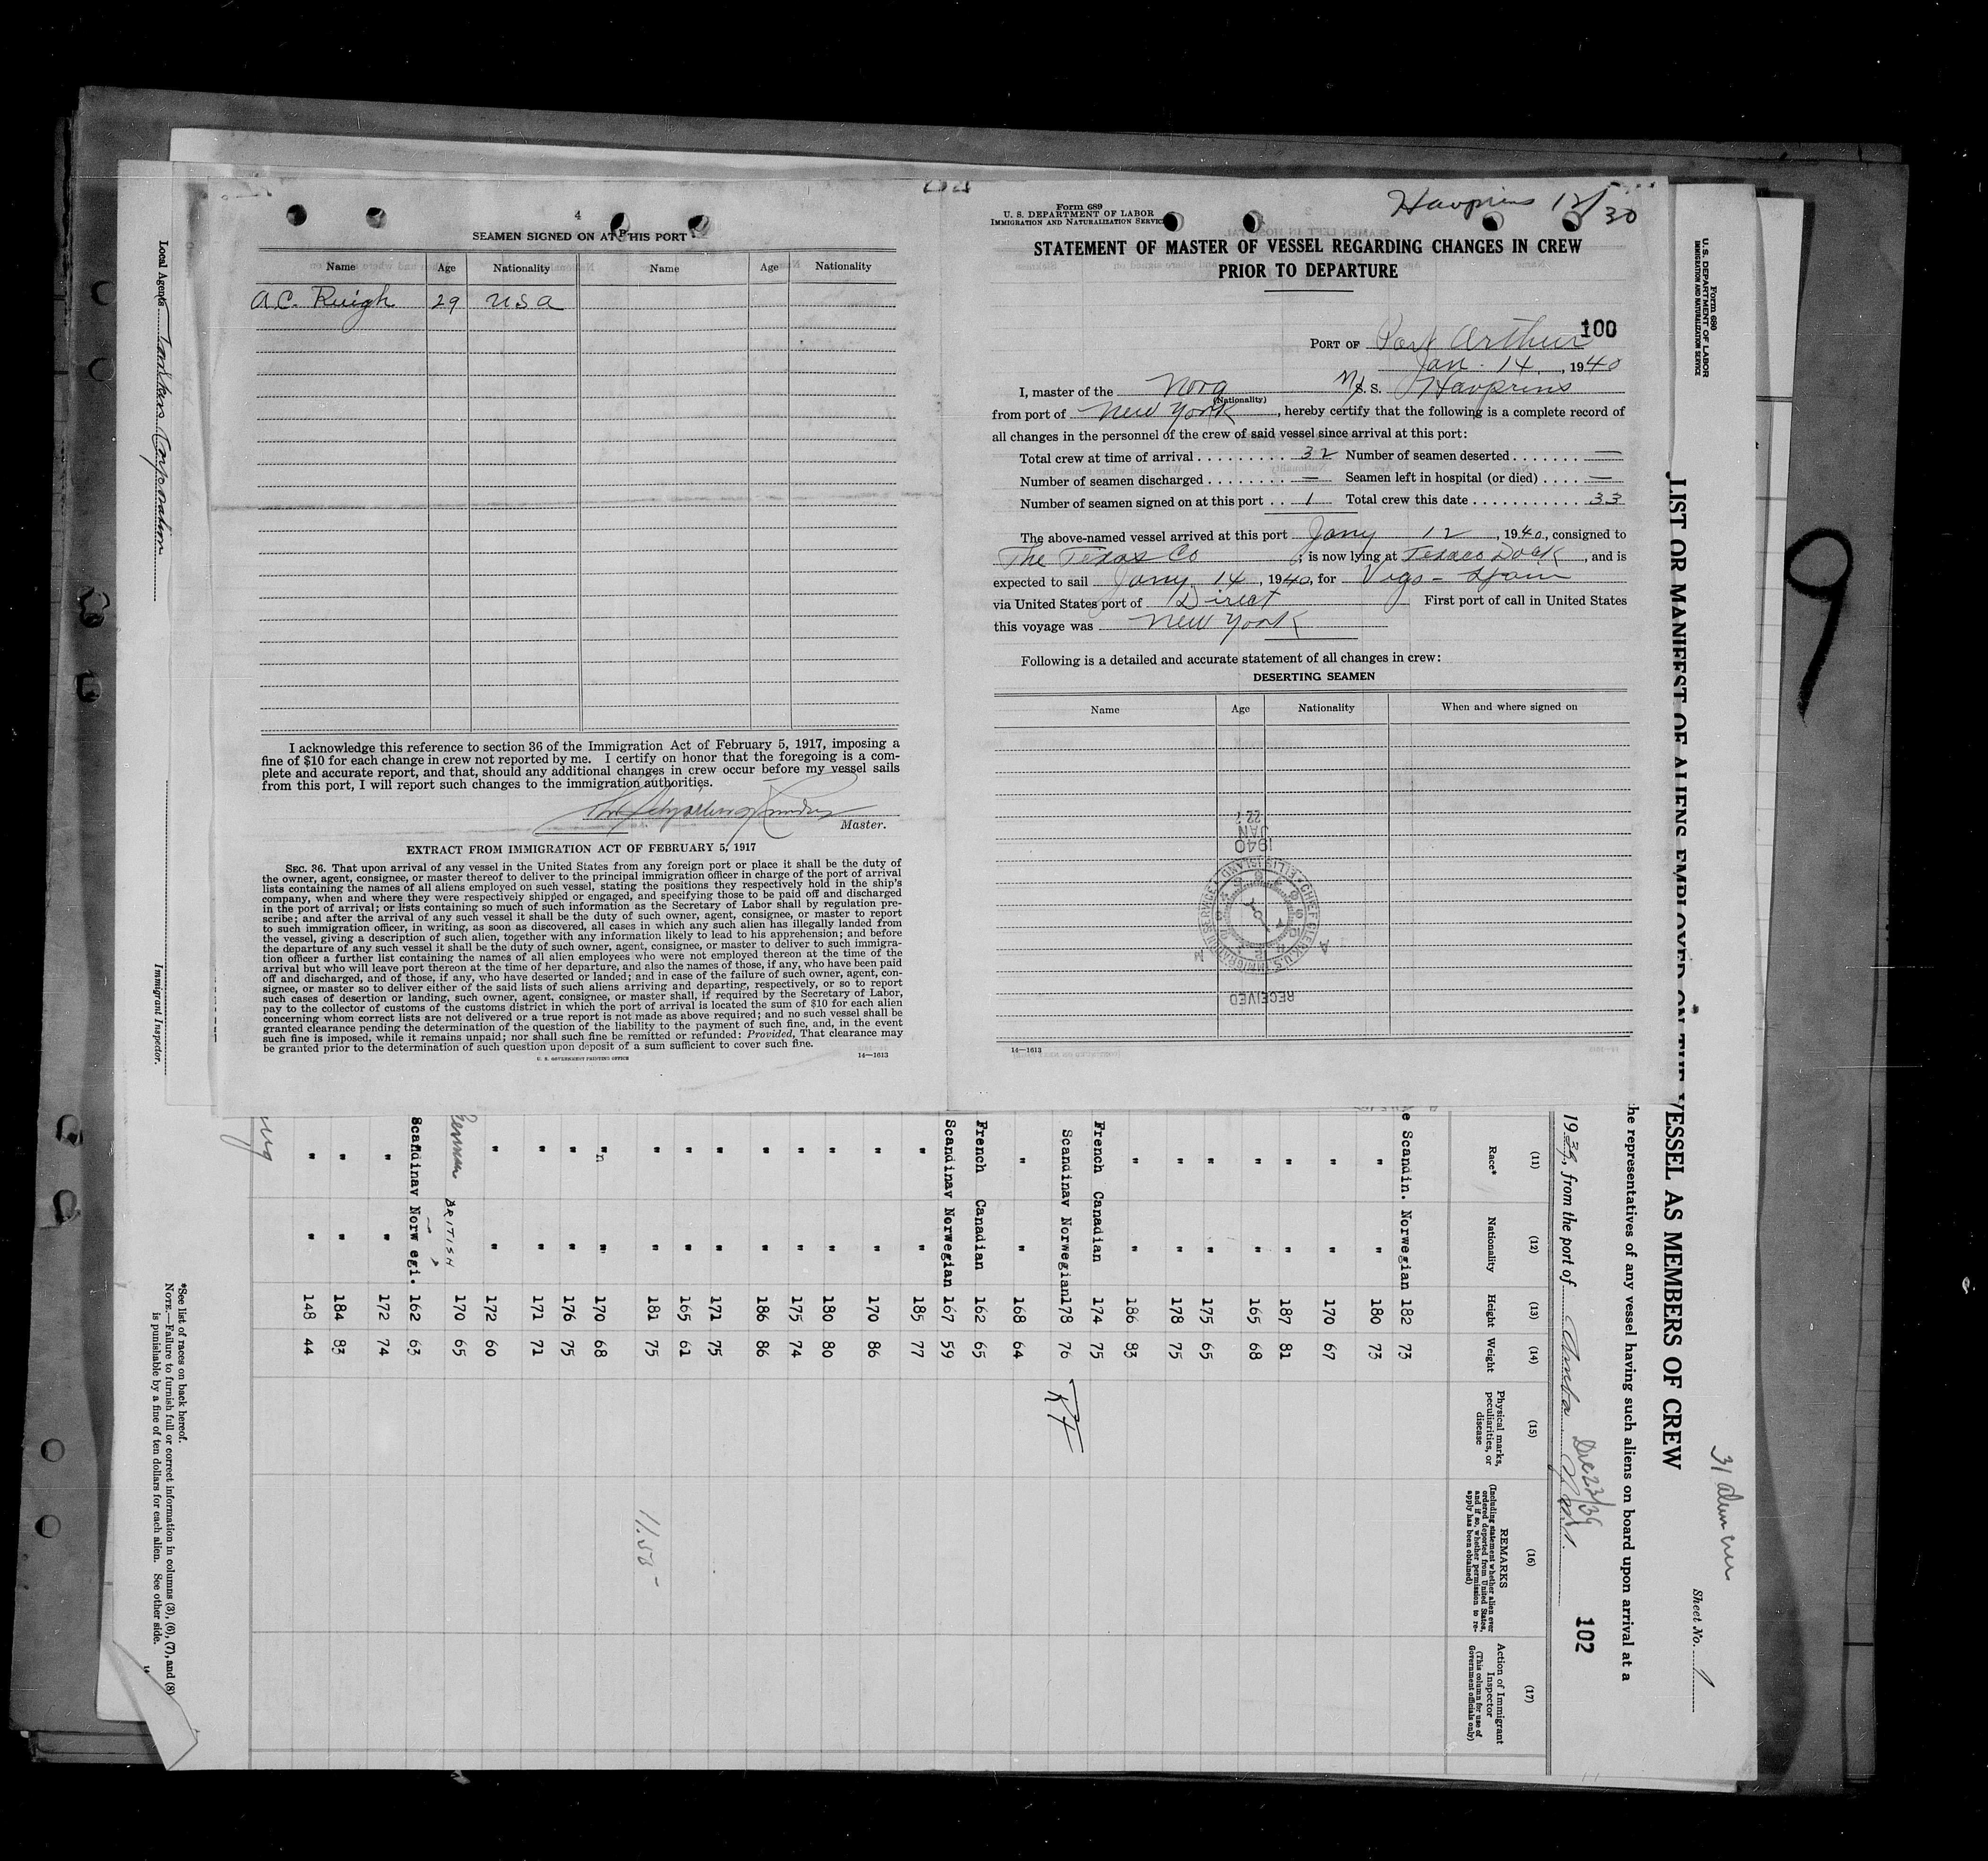 4
SEAMEN SIGNED ON AT THIS PORT
Name Age Nationality Name Age Nationality
A.C. Ruigh 29 USA
I acknowledge this reference to section 36 of the Immigration Act of February 5, 1917, imposing a
fine of $10 for each change in crew not reported by me. I certify on honor that the foregoing is a com-
plete and accurate report, and that, should any additional changes in crew occur before my vessel sails
from this port, I will report such changes to the immigration authorities.
Master.
EXTRACT FROM IMMIGRATION ACT OF FEBRUARY 5, 1917
SEC. 36. That upon arrival of any vessel in the United States from any foreign port or place it shall be the duty of
the owner, agent, consignee, or master thereof to deliver to the principal immigration officer in charge of the port of arrival
lists containing the names of all aliens employed on such vessel, stating the positions they respectively hold in the ship's
company, when and where they were respectively shipped or engaged, and specifying those to be paid off and discharged
in the port of arrival; or lists containing so much of such information as the Secretary of Labor shall by regulation pre-
scribe; and after the arrival of any such vessel it shall be the duty of such owner, agent, consignee, or master to report
to such immigration officer, in writing, as soon as discovered, all cases in which any such alien has illegally landed from
the vessel, giving a description of such alien, together with any information likely to lead to his apprehension; and before
the departure of any such vessel it shall be the duty of such owner, agent, consignee, or master to deliver to such immigra-
tion officer a further list containing the names of all alien employees who were not employed thereon at the time of the
arrival but who will leave port thereon at the time of her departure, and also the names of those, if any, who have been paid
off and discharged, and of those, if any, who have deserted or landed; and in case of the failure of such owner, agent, con-
signee, or master so to deliver either of the said lists of such aliens arriving and departing, respectively, or so to report
such cases of desertion or landing, such owner, agent, consignee, or master shall, if required by the Secretary of Labor,
pay to the collector of customs of the customs district in which the port of arrival is located the sum of $10 for each alien
concerning whom correct lists are not delivered or a true report is not made as above required; and no such vessel shall be
granted clearance pending the determination of the question of the liability to the payment of such fine, and, in the event
such fine is imposed, while it remains unpaid; nor shall such fine be remitted or refunded: Provided, That clearance may
be granted prior to the determination of such question upon deposit of a sum sufficient to cover such fine.
U. S. GOVERNMENT PRINTING OFFICE 14—1613
Form 689
U. S. DEPARTMENT OF LABOR
IMMIGRATION AND NATURALIZATION SERVICE
Havprins 12/30
STATEMENT OF MASTER OF VESSEL REGARDING CHANGES IN CREW
PRIOR TO DEPARTURE
100
PORT OF Port Arthur
Jan. 14, 1940
I, master of the Norg M/S. S. Havprins
(Nationality)
from port of New York, hereby certify that the following is a complete record of
all changes in the personnel of the crew of said vessel since arrival at this port:
Total crew at time of arrival 32 Number of seamen deserted —
Number of seamen discharged — Seamen left in hospital (or died) —
Number of seamen signed on at this port 1 Total crew this date 33
The above-named vessel arrived at this port Jany 12, 1940, consigned to
The Texas Co; is now lying at Texaco Dock, and is
expected to sail Jany. 14, 1940, for Vigo - Spain
via United States port of Direct First port of call in United States
this voyage was New York
Following is a detailed and accurate statement of all changes in crew:
DESERTING SEAMEN
Name Age Nationality When and where signed on
RECEIVED
CHIEF CLERK U.S. IMMIGRATION SERVICE ELLIS ISLAND
1940
JAN
14—1613
Form 680
U. S. DEPARTMENT OF LABOR
IMMIGRATION AND NATURALIZATION SERVICE
31 alien crew
Sheet No. 1
LIST OR MANIFEST OF ALIENS EMPLOYED ON THE VESSEL AS MEMBERS OF CREW
the representatives of any vessel having such aliens on board upon arrival at a
1939, from the port of Aruba
Dec 23/39
102
(11) (12) (13) (14) (15) (16) (17)
Race* Nationality Height Weight Physical marks, peculiarities, or disease REMARKS (Including statement whether alien ever ordered deported from United States, and if so, whether permission to re-apply has been obtained) Action of Immigrant Inspector (This column for use of Government officials only)
e Scandin. Norwegian 182 73
" " 180 73
" " 170 67
" " 187 81
" " 165 68
" " 175 65
" " 178 75
" " 186 83
French Canadian 174 75
Scandinav Norwegian178 76
" " 168 64
French Canadian 162 65
Scandinav Norwegian 167 59
" " 185 77
" " 170 86
" " 180 80
" " 175 74
" " 186 86
" " 171 75
" " 165 61
" " 181 75
11.55-
" " 170 68
" " 176 75
" " 171 71
" " 172 60
German BRITISH 170 65
Scandinav Norwegi. 162 63
" " 172 74
" " 184 83
" " 148 44
*See list of races on back hereof.
NOTE.—Failure to furnish full or correct information in columns (3), (6), (7), and (8)
is punishable by a fine of ten dollars for each alien. See other side.
Local Agents Tankers Corporation
Immigrant Inspector.
9